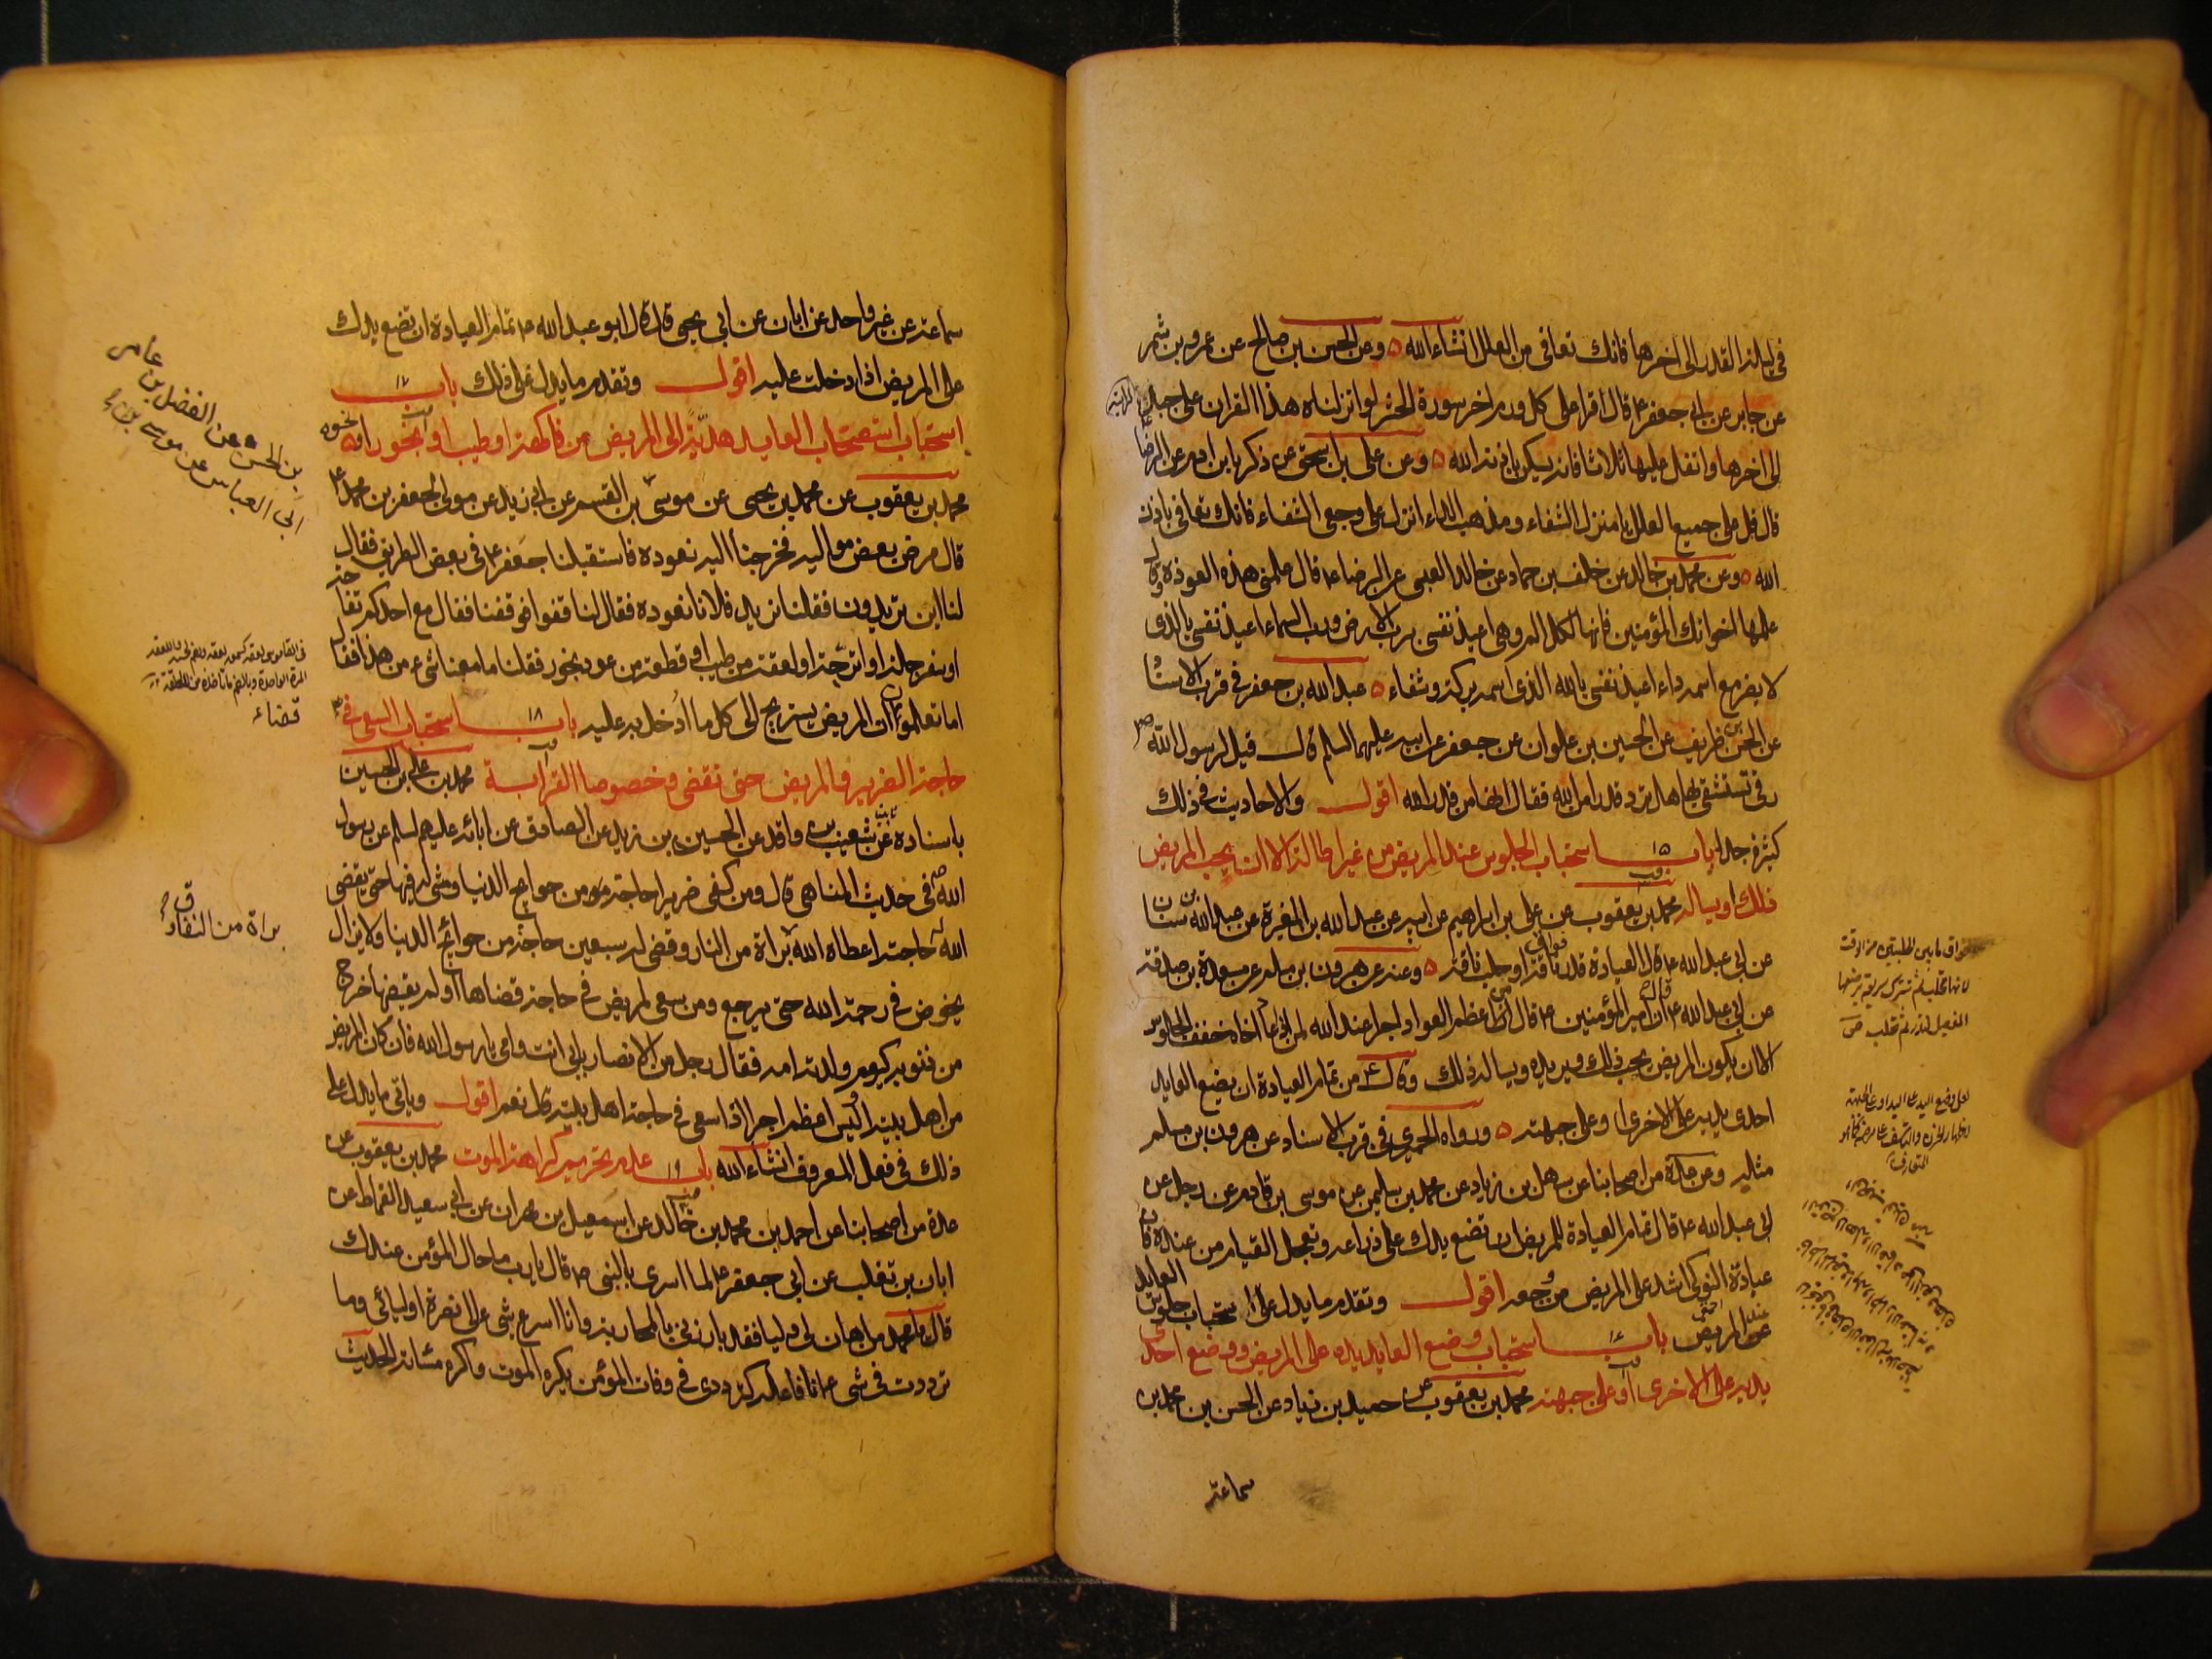 في ليلة القدر الى اخرها فانك تعافى من العلل انشاء الله ٥ وعن الحسن بن صالح عن عمرو بن شمر
عن جابر عن ابي جعفر ع قال اقرا على كل ورم اخر سورة الحشر لو انزلنا هذا القران على جبل
الى اخرها واتفل عليها ثلاثا فانه يسكن باذن الله ٥ وعن علي بن اسحق عن زكريا بن ادم عن الرضا
قال قل على جميع العلل يا منزل الشفاء ومذهب الداء انزل على وجعي الشفاء فانك تعافى باذن
الله ٥ وعن محمد بن خالد عن خلف بن حماد عن خالد العبسي عن الرضا ع قال علمني هذه العوذة وقال
علمها اخوانك المؤمنين فانها لكل الم وهي اعيذ نفسي برب الارض ورب السماء اعيذ نفسي بالذي
لا يضر مع اسمه داء اعيذ نفسي بالله الذي اسمه بركة وشفاء ٥ عبد الله بن جعفر في قرب الاسنا
عن الحسن بن ظريف عن الحسين بن علوان عن جعفر عن ابيه عليهما السلم قال قيل لرسول الله ص
رقى تستشفى بها هل ترد قدرا من الله فقال انها من قدر الله اقول والاحاديث في ذلك
كثيرة جدا باب ١٥ استحباب الجلوس عند المريض من غير اطالة الا ان يحب المريض
ذلك او يساله محمد بن يعقوب عن علي بن ابراهيم عن ابيه عن عبد الله بن المغيرة عن عبد الله بن سنان
عن ابي عبد الله ع قال العيادة قدر فواق ناقة او حلب ناقة ٥ وعنه عن هرون بن مسلم عن مسعدة بن صدقة
عن ابي عبد الله ع ان امير المؤمنين ع قال ان من اعظم العواد اجرا عند الله لمن اذا عاد اخاه خفف الجلوس
الا ان يكون المريض يحب ذلك ويريده ويساله ذلك وقال ع من تمام العيادة ان يضع العايد
احدى يديه على الاخرى او على جبهته ٥ ورواه الحميري في قرب الاسناد عن هرون بن مسلم
مثله وعن عدة من اصحابنا عن سهل بن زياد عن محمد بن سليمن عن موسى بن قادم عن رجل عن
ابي عبد الله ع قال تمام العيادة للمريض ان تضع يدك على ذراعه وتعجل القيام من عنده فان
عيادة النوكى اشد على المريض من وجعه اقول وتقدم ما يدل على استحباب جلوس العايد
عند المريض باب ١٦ استحباب وضع العايد يده على المريض ووضع احدى
يديه على الاخرى او على جبهته محمد بن يعقوب عن حميد بن زياد عن الحسن بن محمد بن
سماعة
فواق ما بين الحلبتين من الوقت
لانها تحلب ثم تترك سويعة يرضعها
الفصيل لتدر ثم تحلب ص
سماعة عن غير واحد عن ابان عن ابي يحيى قال قال ابو عبد الله ع تمام العيادة ان تضع يدك
على المريض اذا دخلت عليه اقول وتقدم ما يدل على ذلك باب ١٧
استحباب استصحاب العايد هدية الى المريض من فاكهة او طيب او بخور او نحوه
محمد بن يعقوب عن محمد بن يحيى عن موسى بن القسم عن ابي زيد عن مولى لجعفر بن محمد ع
قال مرض بعض مواليه فخرجنا اليه نعوده فاستقبلنا جعفر ع في بعض الطريق فقال
لنا اين تريدون فقلنا نريد فلانا نعوده فقال لنا قفوا فوقفنا فقال مع احدكم تفاحة
او سفرجلة او اترجة او لعقة من طيب او قطعة من عود بخور فقلنا ما معنا شيء من هذا فقال
اما تعلمون ان المريض يستريح الى كل ما ادخل به عليه باب ١٨ استحباب السعي في
حاجة الضرير والمريض حتى تقضى وخصوصا القرابة محمد بن علي بن الحسين
باسناده عن شعيب بن واقد عن الحسين بن زيد عن الصادق عن ابائه عليهم السلم عن رسول
الله ص في حديث المناهي قال ومن كفى ضريرا حاجة من حوايج الدنيا ومشى له فيها حتى يقضي
الله له حاجته اعطاه الله براة من النار وقضى له سبعين حاجة من حوايج الدنيا ولا يزال
يخوض في رحمة الله حتى يرجع ومن سعى لمريض في حاجة قضاها او لم يقضها خرج
من ذنوبه كيوم ولدته امه فقال رجل من الانصار بابي انت وامي يا رسول الله فان كان المريض
من اهل بيته او ليس اعظم اجرا اذا سعى في حاجة اهل بيته قال نعم اقول وياتي ما يدل على
ذلك في فعل المعروف انشاء الله باب ١٩ عدم تحريم كراهة الموت محمد بن يعقوب عن
عدة من اصحابنا عن احمد بن محمد بن خالد عن اسمعيل بن مهران عن ابي سعيد القماط عن
ابان بن تغلب عن ابي جعفر ع لما اسري بالنبي ص قال يا رب ما حال المؤمن عندك
قال يا محمد من اهان لي وليا فقد بارزني بالمحاربة وانا اسرع شيء الى نصرة اوليائي وما
ترددت في شيء انا فاعله كترددي في وفات المؤمن يكره الموت واكره مسائته الحديث
بن الحسن ٥ وعن الفضل بن عامر
ابي العباس عن موسى بن
براة من النفاق